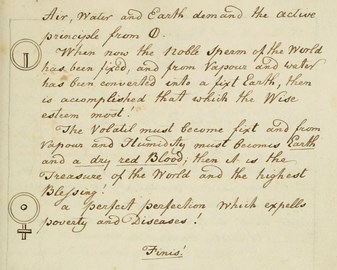 Air, Water and Earth demand the active
principle from
When now the Noble Sperm of the World
has been fixed, and from Vapour and water
has been converted into a fixt Earth, then
is accomplished that which the Wise
esteem most!
The Volatil must become fixt and from
Vapour and Humidity must becomes Earth
and a dry red Blood; then it is the
Treasure of the World and the highest
Blessing!
a perfect perfection which expells
poverty and Diseases!
Finis!